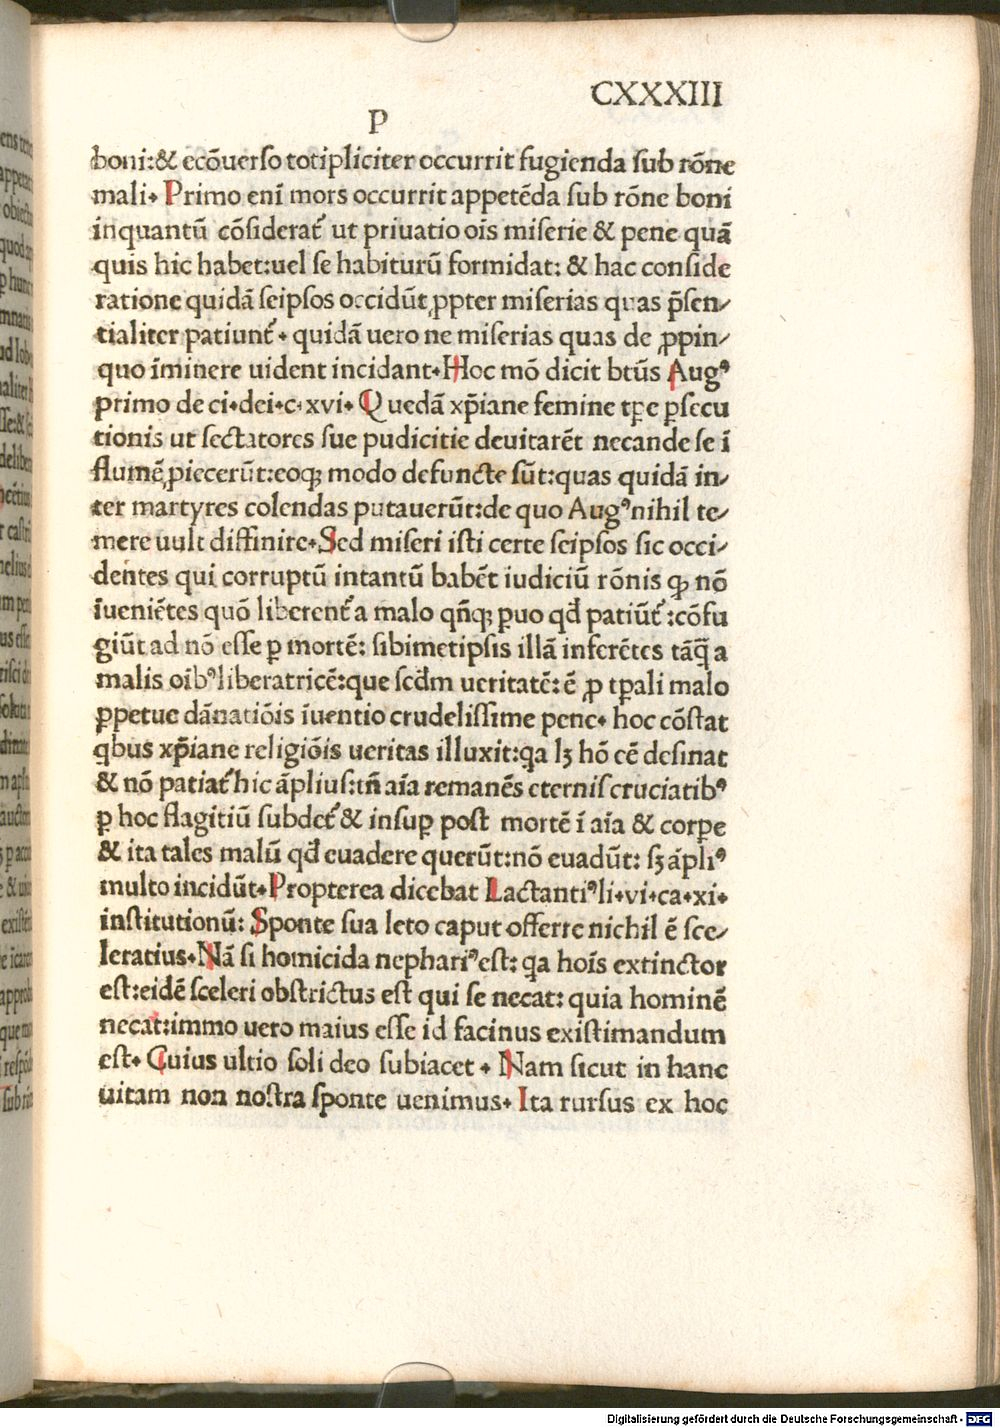 CXXXIII
P
boni:& ecōuerſo totipliciter occurrit fugienda ſub rōne
mali· Primo eni mors occurrit appetēda ſub rōne boni
inquantū cōſiderat᷑ ut priuatio oīs miſerie & pene quā
quis hic habet:uel ſe habiturū formidat: & hac conſide
ratione quidā ſeipſos occidūt ꝓpter miſerias quas p̄ſen/
tialiter patiunt᷑· quidā uero ne miſerias quas de ꝓpin/
quo īminere uident incidant·Hoc mō dicit btūs Augꝰ
primo de ci·dei·c·xvi· Quedā xp̄iane femine tꝑe ꝑſecu
tionis ut ſectatores ſue pudicitie deuitarēt necande ſe ī
flumē ꝓiecerūt:eoqꝫ modo defuncte ſūt:quas quidā in/
ter martyres colendas putauerūt:de quo Augꝰ nihil te/
mere uult diffinire·Sed miſeri iſti certe ſeipſos ſic occi/
dentes qui corruptū intantū babēt iudiciū rōnis ꝙ nō
īueniētes quō liberent᷑ a malo qn̄qꝫ ꝑuo qđ patiūt᷑:cōfu
giūt ad nō eſſe ꝑ mortē: ſibimetipſis illā inferētes tāꝗ̄ a
malis oībꝰ liberatricē:que ſcđm ueritatē: ē ꝓ tꝑali malo
ꝑpetue dānatiōis īuentio crudeliſſime pene· hoc cōſtat
ꝗbus xp̄iane religiōis ueritas illuxit:ꝗa lꝫ hō cē deſinat
& nō patiat᷑ hic āplius:tn̄ aīa remanēs eternis cruciatibꝰ
ꝑ hoc flagitiū ſubdet᷑ & inſuꝑ poſt mortē ī aīa & corꝑe
& ita tales malū qđ euadere querūt:nō euadūt: ſꝫ āpliꝰ
multo incidūt·Propterea dicebat Lactantiꝰ li·vi·ca·xi·
inſtitutionū: Sponte ſua leto caput offerre nichil ē ſce/
leratius·Nā ſi homicida nephariꝰ eſt: ꝗa hoīs extinctor
eſt:eidē ſceleri obſtrictus eſt qui ſe necat: quia hominē
necat:immo uero maius eſſe id facinus exiſtimandum
eſt· Cuius ultio ſoli deo ſubiacet · Nam ſicut in hanc
uitam non noſtra ſponte uenimus· Ita rurſus ex hoc
Digitalisierung gefördert durch die Deutsche Forschungsgemeinschaft - DFG